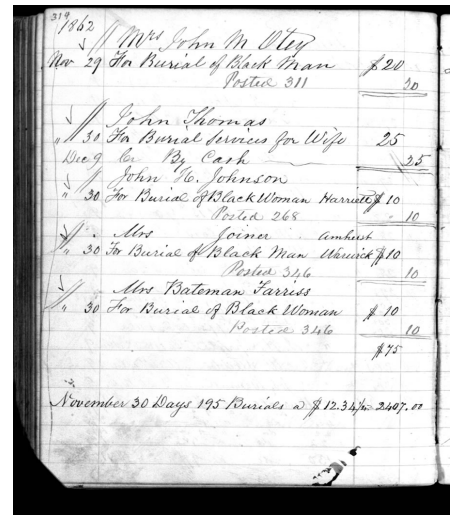 319
1862
Mrs John M Otey
Nov 29 For Burial of Black Man $20
Posted 311 20
John Thomas
" 30 For Burial Services for Wife 25
Dec 9 Cr By Cash 25
John H. Johnson
" 30 For Burial of Black Woman Harriett $10
Posted 268 10
Mrs Joiner Amherst
" 30 For Burial of Black Man Warwick $10
Posted 346 10
Mrs Bateman Farriss
" 30 For Burial of Black Woman $10
Posted 346 10
$75
November 30 Days 195 Burials a $12.34 2407.00